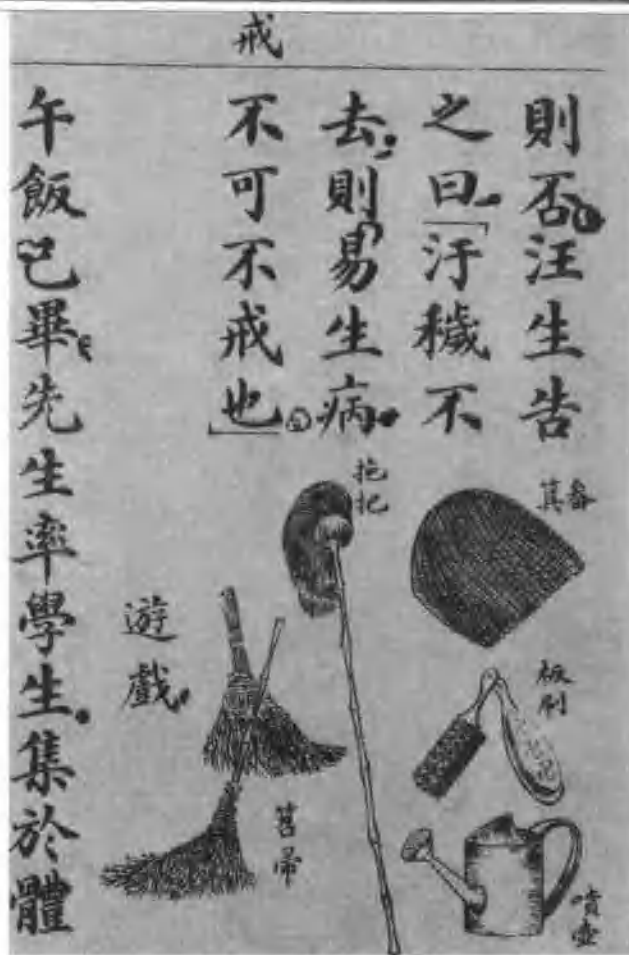 戒
則否。汪生告
之曰,「汙穢不
去,則易生病,
不可不戒也」。
畚箕
板刷
噴壺
拖把
笤帚
遊戲
午飯已畢,先生率學生,集於體